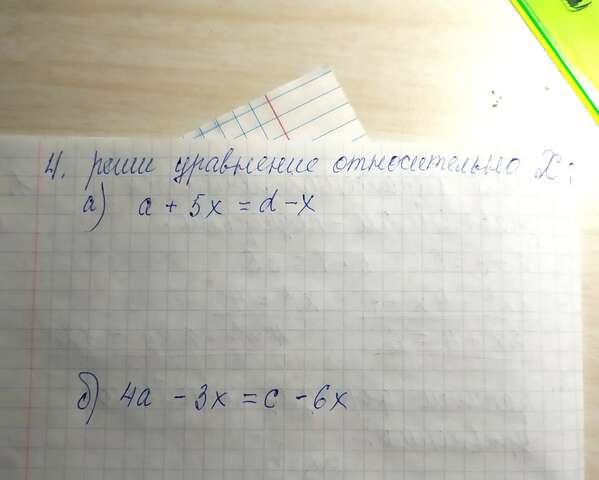 4. реши уравнение относительно x:
а) a + 5x = d - x
б) 4a - 3x = c - 6x